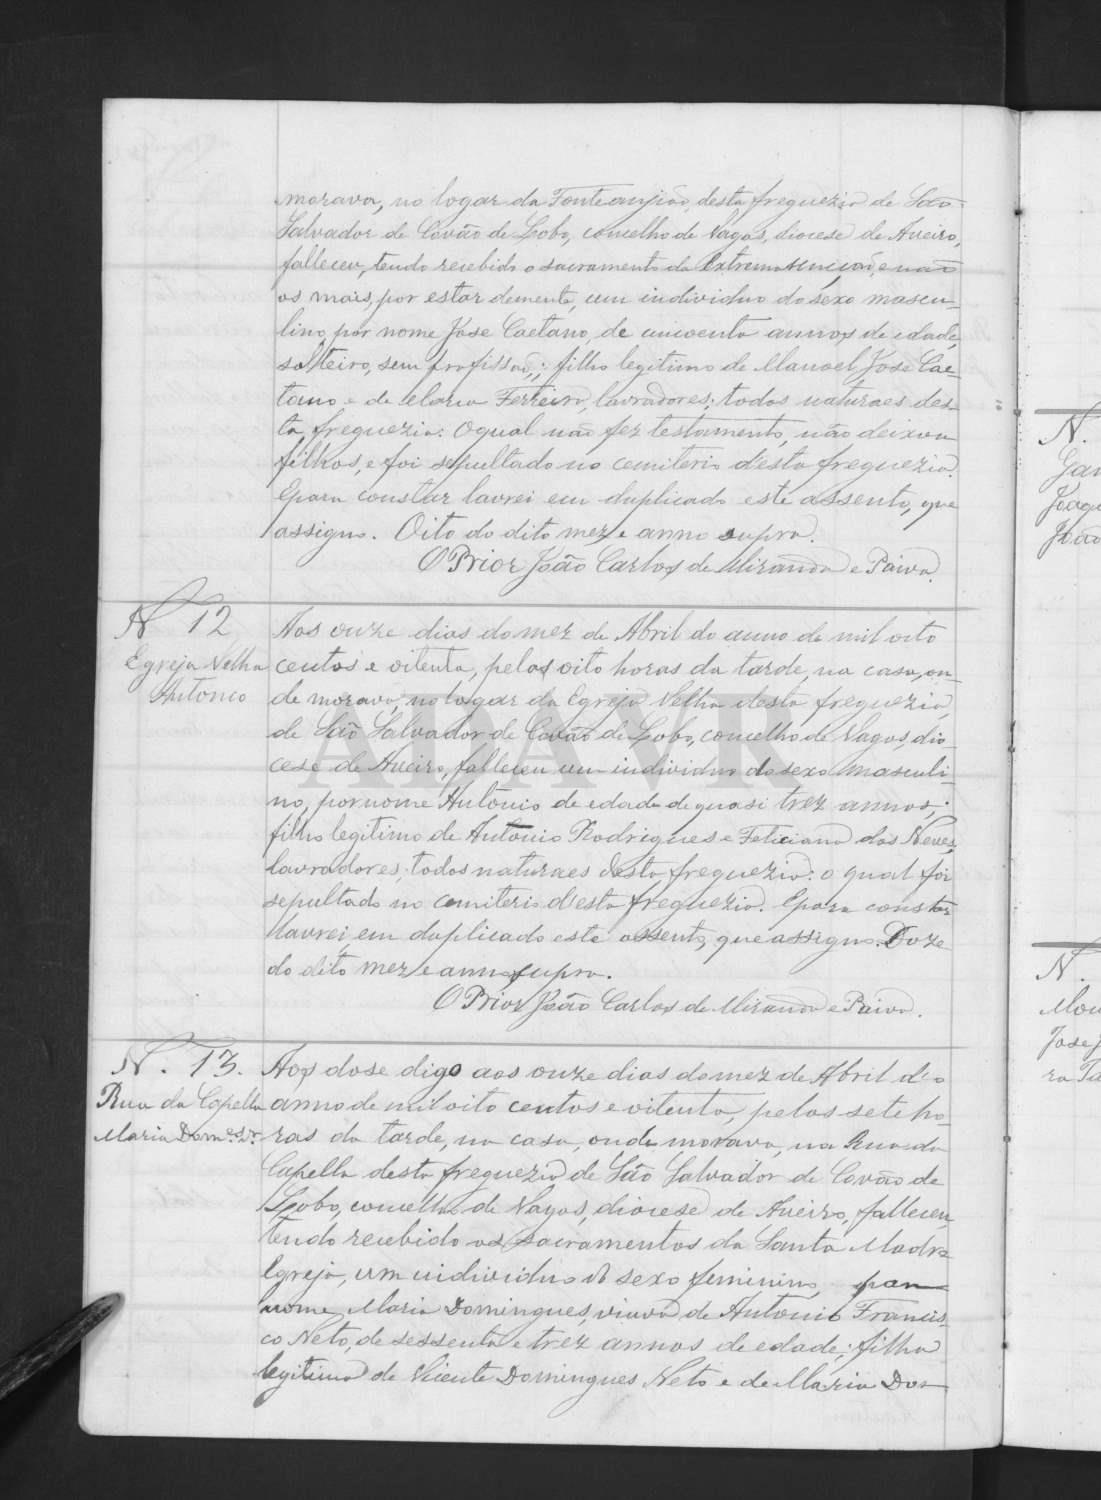 morava, no logar da Fonteanjião, desta freguezia de São
Salvador de Covão de Lobo, concelho de Vagos, diocese de Aveiro,
falleceu, tendo recebido o sacramento da Extrema unção, e não
os mais, por estar demente, um individuo do sexo mascu-
lino, por nome José Caetano, de cincoenta annos de edade,
solteiro, sem profissão,; filho legitimo de Manoel José Cae-
tano e de Maria Ferreira, lavradores; todos naturaes des-
ta freguezia: o qual não fez testamento, não deixou
filhos, e foi sepultado no cemiterio d'esta freguezia.
E para constar lavrei em duplicado este assento, que
assigno. Oito do dito mez e anno supra.
O Prior João Carlos de Miranda e Paiva.
N 12
Egreja Velha
Antonio
Aos onze dias do mez de Abril do anno de mil oito
centos e oitenta, pelas oito horas da tarde, na casa, on-
de morava, no logar da Egreja Velha desta freguezia,
de São Salvador de Covão de Lobo, concelho de Vagos, dio-
cese de Aveiro, falleceu um individuo do sexo masculi-
no, por nome Antonio de edade de quasi trez annos,;
filho legitimo de Antonio Rodrigues e Feliciana das Neves,
lavradores; todos naturaes desta freguezia: o qual foi
sepultado no cemiterio d'esta freguezia. E para constar
lavrei, em duplicado este assento, que assigno. Doze
do dito mez e anno supra.
O Prior João Carlos de Miranda e Paiva.
ADAVR
N. 13.
Rua da Capella
Maria Dom.es V.a
Aos dose digo aos onze dias do mez de Abril do
anno de mil oito centos e oitenta, pelas sete ho-
ras da tarde, na casa, onde morava, na Rua da
Capella desta freguezia de São Salvador de Covão de
Lobo, concelho de Vagos, diocese de Aveiro, falleceu,
tendo recebido os sacramentos da Santa Madre
Egreja, um individuo do sexo feminino, por
nome Maria Domingues, viuva de Antonio Francis-
co Neto, de sessenta e trez annos de edade,; filha
legitima de Vicente Domingues Neto e de Maria Do-
N.
Joaq
João
N.
José